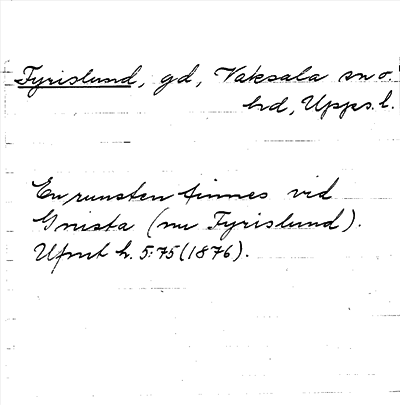 Fyrislund, gd, Vaksala sn o.
hd, Upps. l.
En runsten finnes vid
Gnista (nu Fyrislund).
Ufmt h. 5:75 (1876).